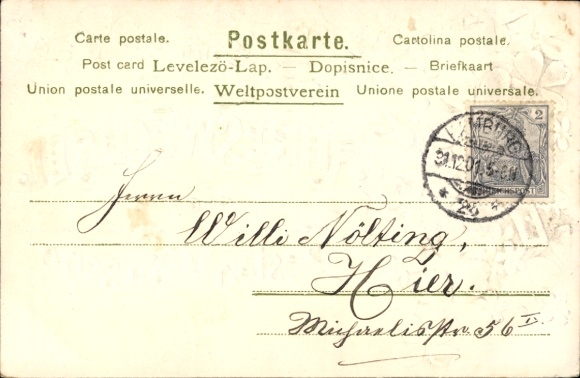 Carte postale. Postkarte. Cartolina postale.
Post card Levelezö-Lap. — Dopisnice. — Briefkaart
Union postale universelle. Weltpostverein Unione postale universale.
2
HAMBURG
31.12.01. 5-6N
* 25
REICHSPOST
Herrn
Willi Nölting,
Hier.
Michaelisstr. 56 II.